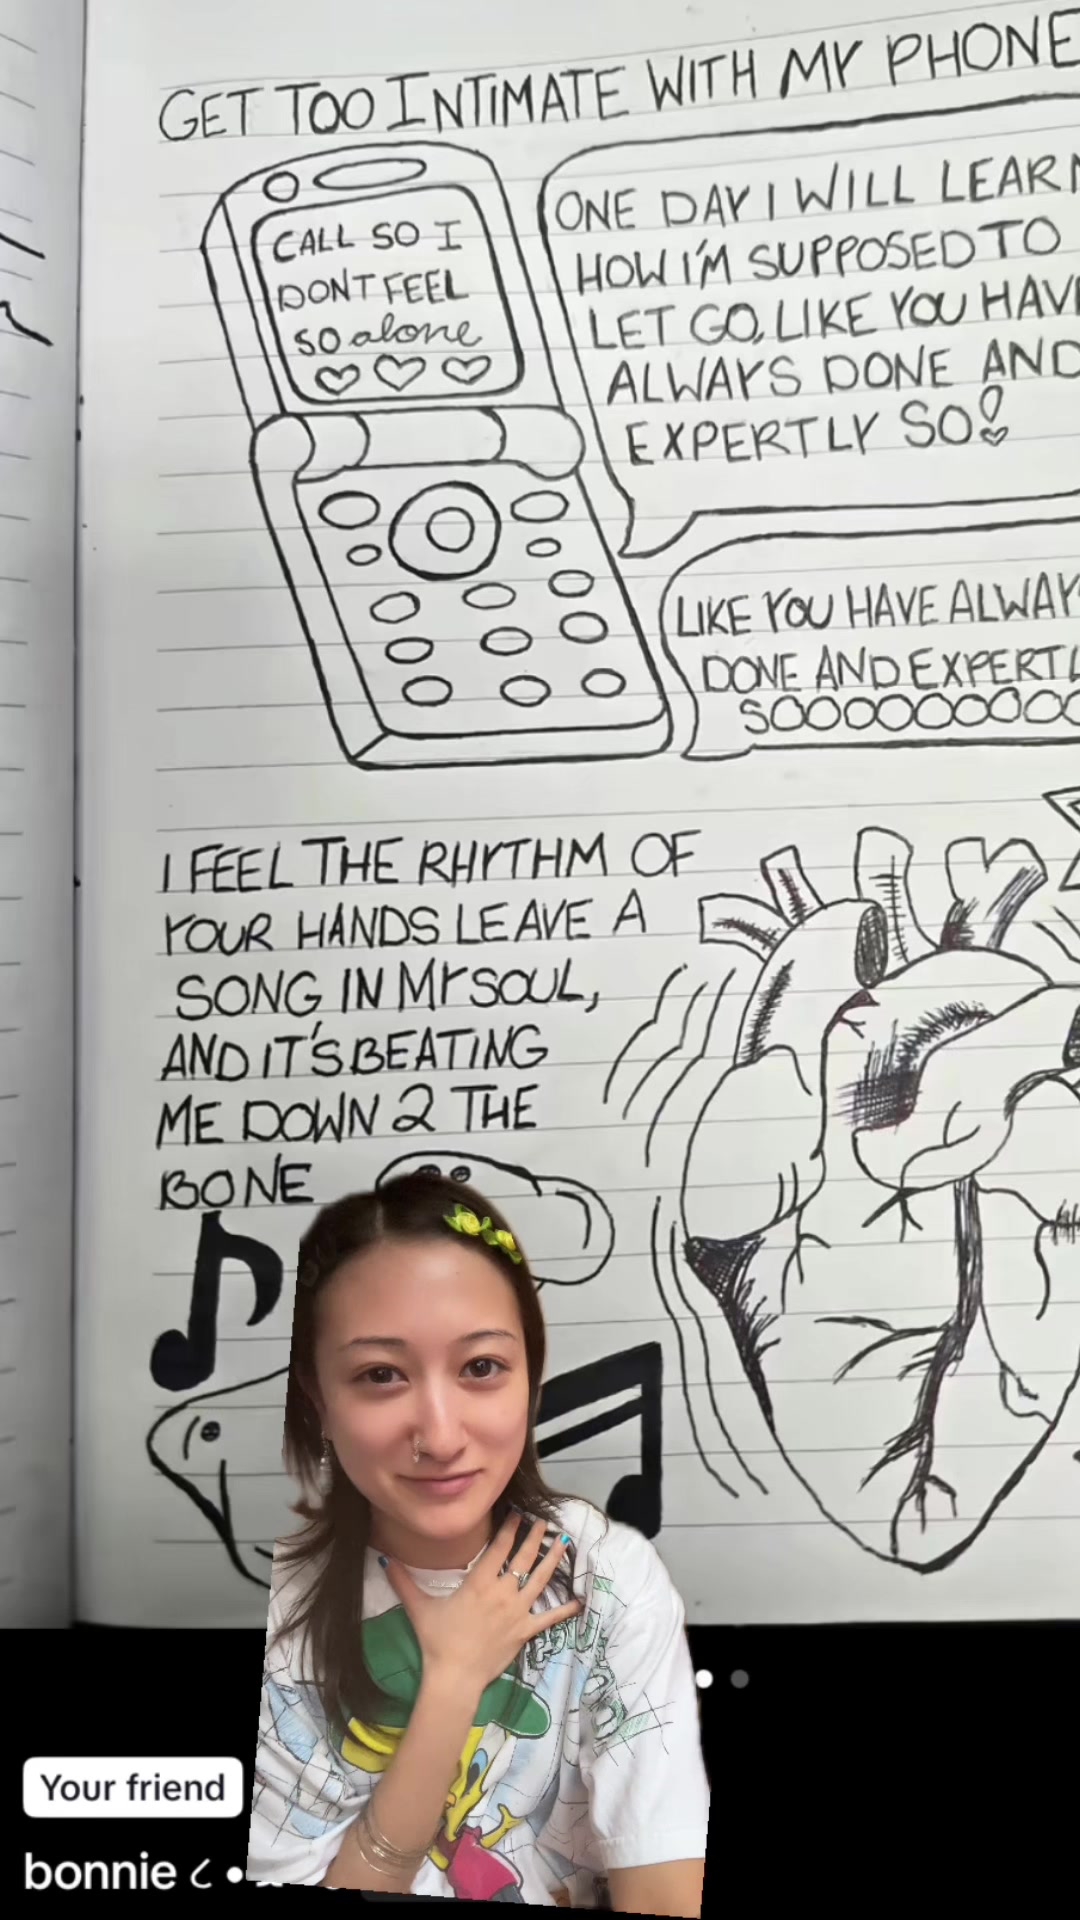 GET TOO INTIMATE WITH MY PHONE
CALL SO I
DONT FEEL
SO alone
ONE DAY I WILL LEARN
HOW I'M SUPPOSED TO
LET GO, LIKE YOU HAVE
ALWAYS DONE AND
EXPERTLY SO!
LIKE YOU HAVE ALWAYS
DONE AND EXPERTL
SOOOOOOOOO
I FEEL THE RHYTHM OF
YOUR HANDS LEAVE A
SONG IN MY SOUL,
AND IT'S BEATING
ME DOWN 2 THE
BONE
Your friend
bonnie